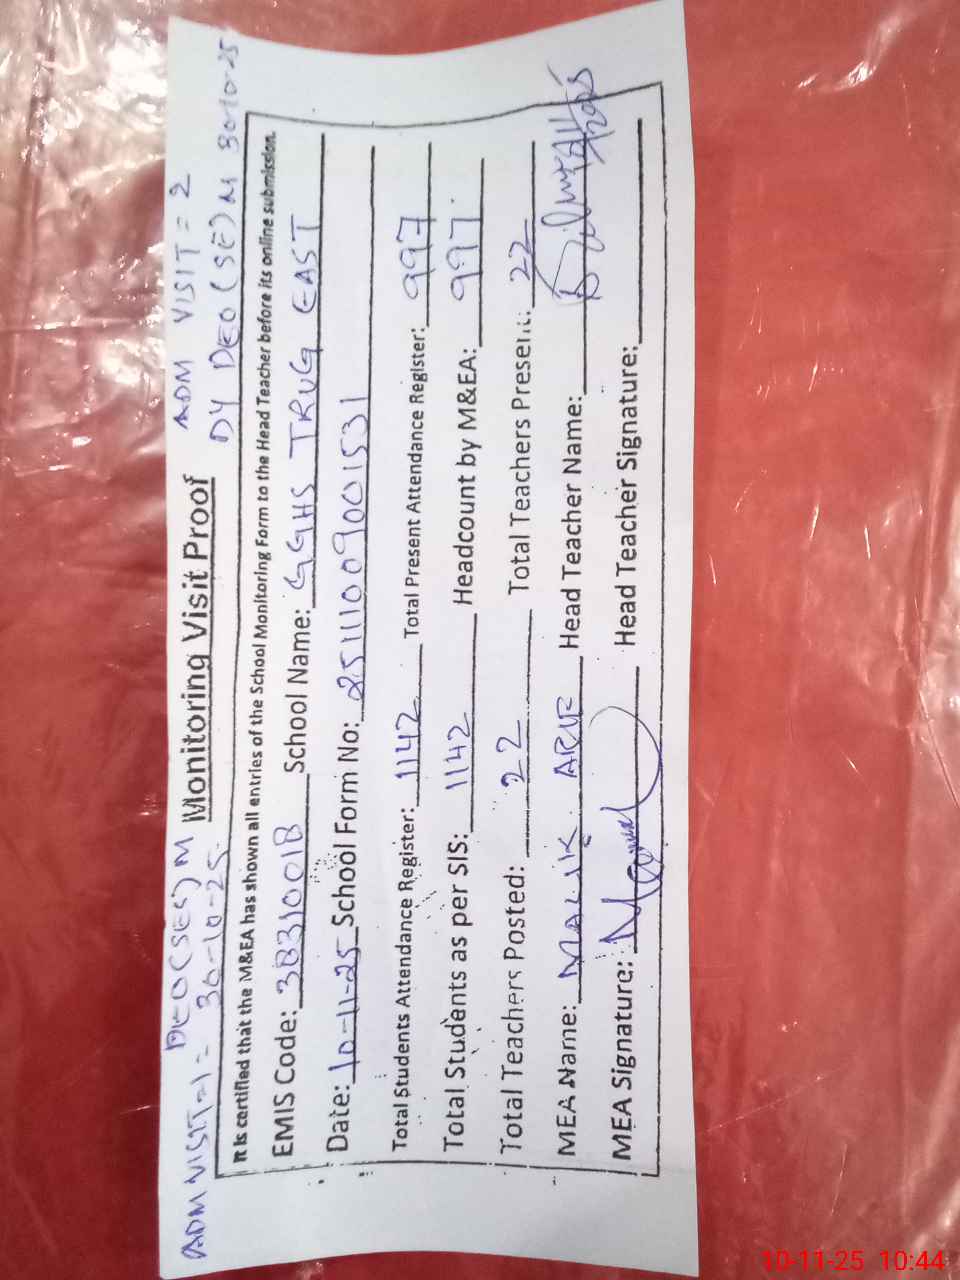 ADM VISIT=1= DEO (SES) M ADM VISIT = 2
30-10-25 Monitoring Visit Proof DY DEO (SE) M 30-10-25
It is certified that the M&EA has shown all entries of the School Monitoring Form to the Head Teacher before its online submission.
EMIS Code: 38310018 School Name: GGHS TRUG EAST
Date: 10-11-25 School Form No: 25111009001531
Total Students Attendance Register: 1142 Total Present Attendance Register: 997
Total Students as per SIS: 1142 Headcount by M&EA: 997
Total Teachers Posted: 22 Total Teachers Present: 22
MEA Name: MALIK ARIF Head Teacher Name:
MEA Signature: Head Teacher Signature:
10-11-25 10:44